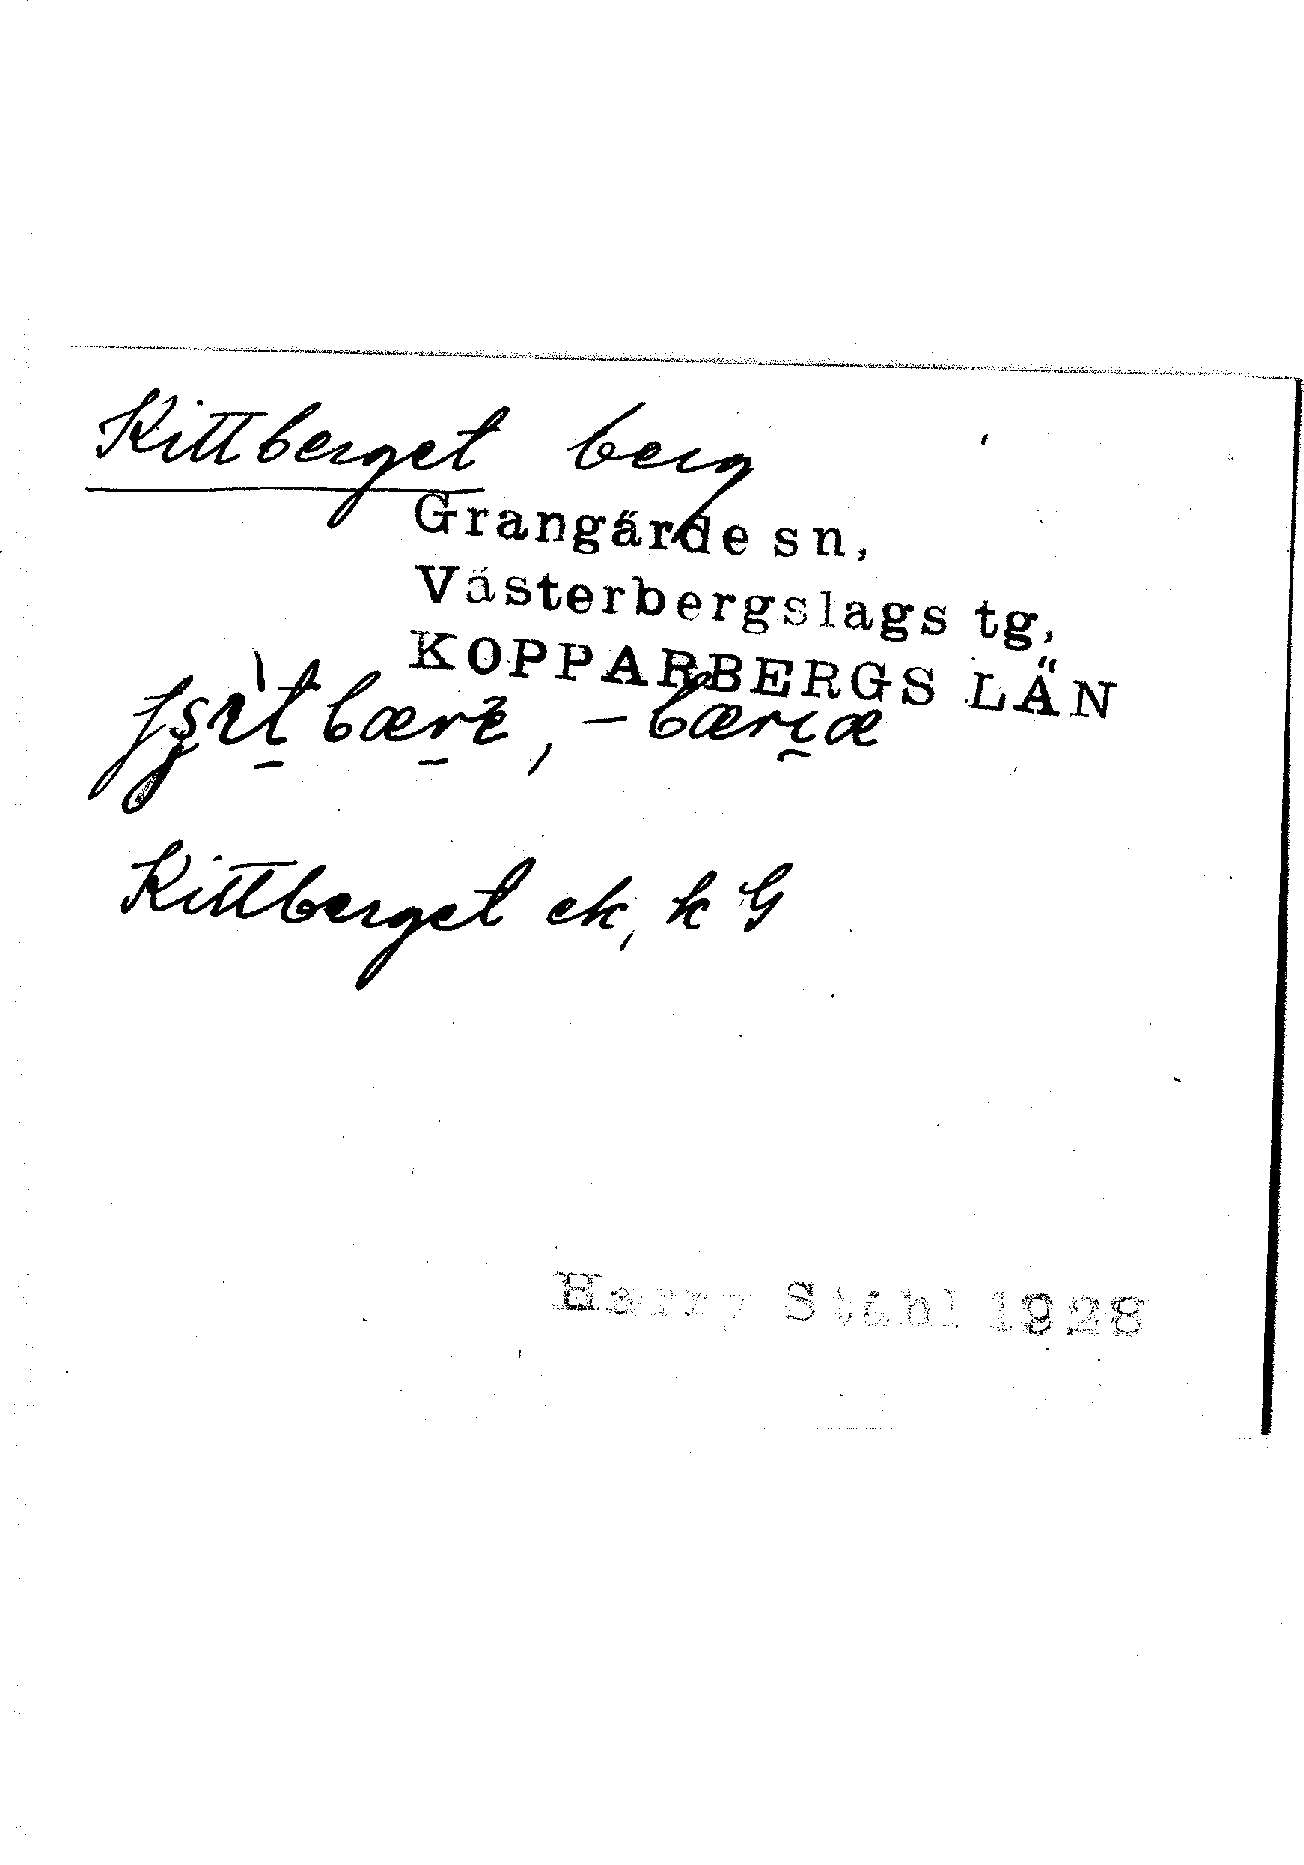 Kittberget berg
Grangärde sn,
Västerbergslags tg,
KOPPARBERGS LÄN
Kittberget ek, k G
Harry Ståhl 1928